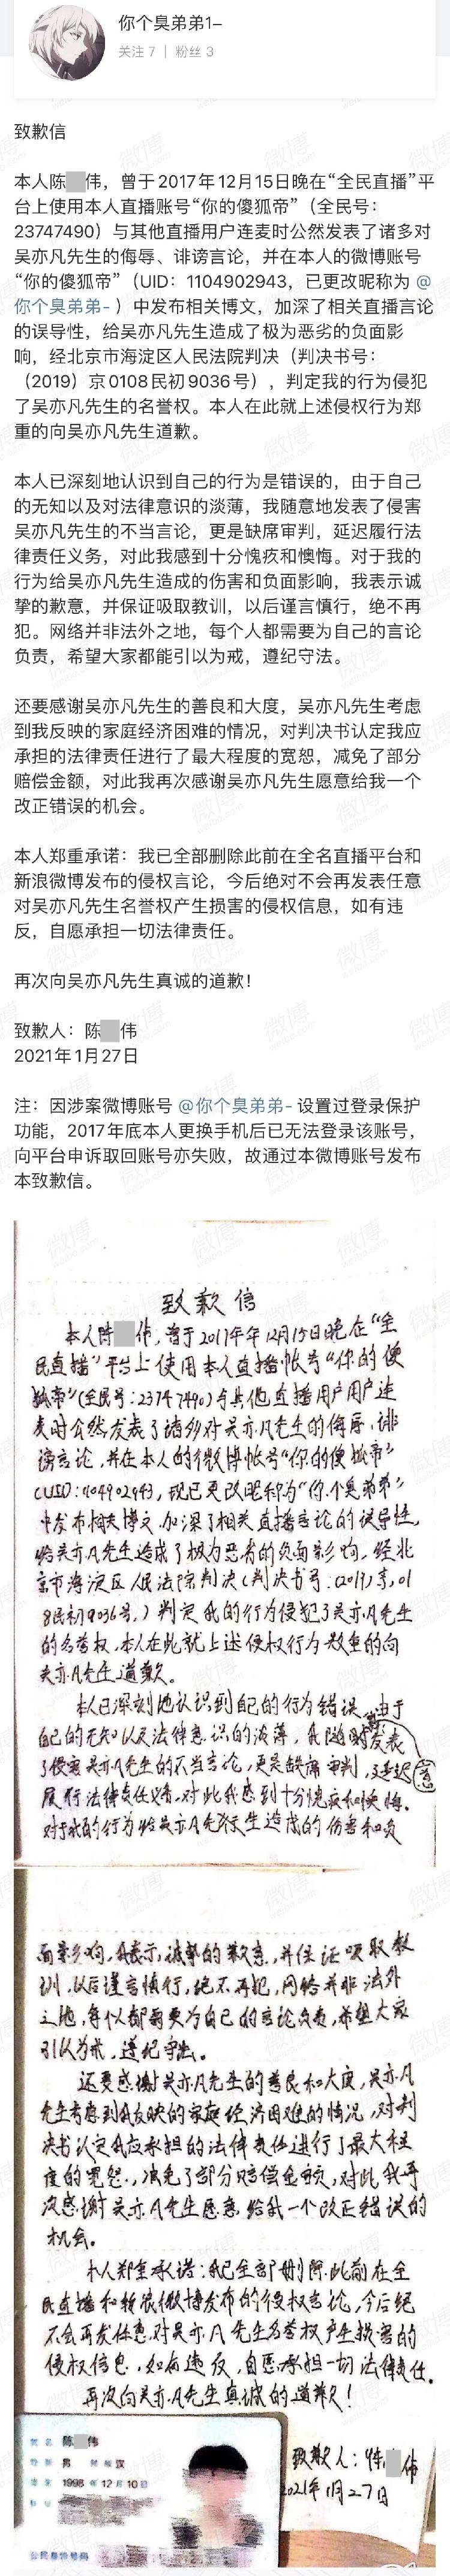 你个臭弟弟1–
关注 7 | 粉丝 3
致歉信
本人陈 伟，曾于2017年12月15日晚在“全民直播”平
台上使用本人直播账号“你的傻狐帝”（全民号：
23747490）与其他直播用户连麦时公然发表了诸多对
吴亦凡先生的侮辱、诽谤言论，并在本人的微博账号
“你的傻狐帝”（UID：1104902943，已更改昵称为 @
你个臭弟弟- ）中发布相关博文，加深了相关直播言论
的误导性，给吴亦凡先生造成了极为恶劣的负面影
响，经北京市海淀区人民法院判决（判决书号：
（2019）京0108民初9036号），判定我的行为侵犯
了吴亦凡先生的名誉权。本人在此就上述侵权行为郑
重的向吴亦凡先生道歉。
本人已深刻地认识到自己的行为是错误的，由于自己
的无知以及对法律意识的淡薄，我随意地发表了侵害
吴亦凡先生的不当言论，更是缺席审判，延迟履行法
律责任义务，对此我感到十分愧疚和懊悔。对于我的
行为给吴亦凡先生造成的伤害和负面影响，我表示诚
挚的歉意，并保证吸取教训，以后谨言慎行，绝不再
犯。网络并非法外之地，每个人都需要为自己的言论
负责，希望大家都能引以为戒，遵纪守法。
还要感谢吴亦凡先生的善良和大度，吴亦凡先生考虑
到我反映的家庭经济困难的情况，对判决书认定我应
承担的法律责任进行了最大程度的宽恕，减免了部分
赔偿金额，对此我再次感谢吴亦凡先生愿意给我一个
改正错误的机会。
本人郑重承诺：我已全部删除此前在全名直播平台和
新浪微博发布的侵权言论，今后绝对不会再发表任意
对吴亦凡先生名誉权产生损害的侵权信息，如有违
反，自愿承担一切法律责任。
再次向吴亦凡先生真诚的道歉！
致歉人：陈 伟
2021年1月27日
注：因涉案微博账号 @你个臭弟弟- 设置过登录保护
功能，2017年底本人更换手机后已无法登录该账号，
向平台申诉取回账号亦失败，故通过本微博账号发布
本致歉信。
致歉信
本人陈 伟，曾于2017年年12月15日晚在“全
民直播”平台上使用本人直播帐号“你的傻
狐帝”(全民号:23747490)与其他直播用户用户连
麦时公然发表了诸多对吴亦凡先生的侮辱、诽
谤言论，并在本人的微博帐号“你的傻狐帝”
(UID:1104902943,现已更改昵称为“你个臭弟弟”
中发布相关博文,加深了相关直播言论的误导性,
给吴亦凡先生造成了极为恶劣的负面影响，经北
京市海淀区人民法院判决(判决书号:(2019)京,01
08民初9036号,)判定我的行为侵犯了吴亦凡先生
的名誉权,本人在此就上述侵权行为郑重的向
吴亦凡先生道歉。
本人已深刻地认识到自己的行为错误,由于
自己的无知以及法律意识的淡薄，我随 发表
了侵害吴亦凡先生的不当言论,更是缺席审判,延迟 意
履行法律责任义务,对此我感到十分愧疚和懊悔.
对于我的行为给吴亦凡先生造成的伤害和负
面影响,我表示诚挚的歉意,并保证吸取教
训,以后谨言慎行,绝不再犯,网络并非法外
之地,每个人都需要为自己的言论负责,希望大家
引以为戒,遵纪守法。
还要感谢吴亦凡先生的善良和大度,吴亦凡
先生考虑到我反映的家庭经济困难的情况,对判
决书认定我应承担的法律责任进行了最大程
度的宽恕.,减免了部分赔偿金额,对此我再
次感谢吴亦凡先生愿意给我一个改正错误的
机会。
本人郑重承诺:我已全部删除此前在全
民直播和新浪微博发布的侵权言论,今后绝
不会再发任意对吴亦凡先生名誉权产生损害的
侵权信息,如有违反,自愿承担一切法律责任.
再次向吴亦凡先生真诚的道歉！
姓名 陈 伟
性别 男 民族 汉
出生 1998 年 12 月 10 日
住址
公民身份号码
致歉人:陈 伟
2021年1月27日